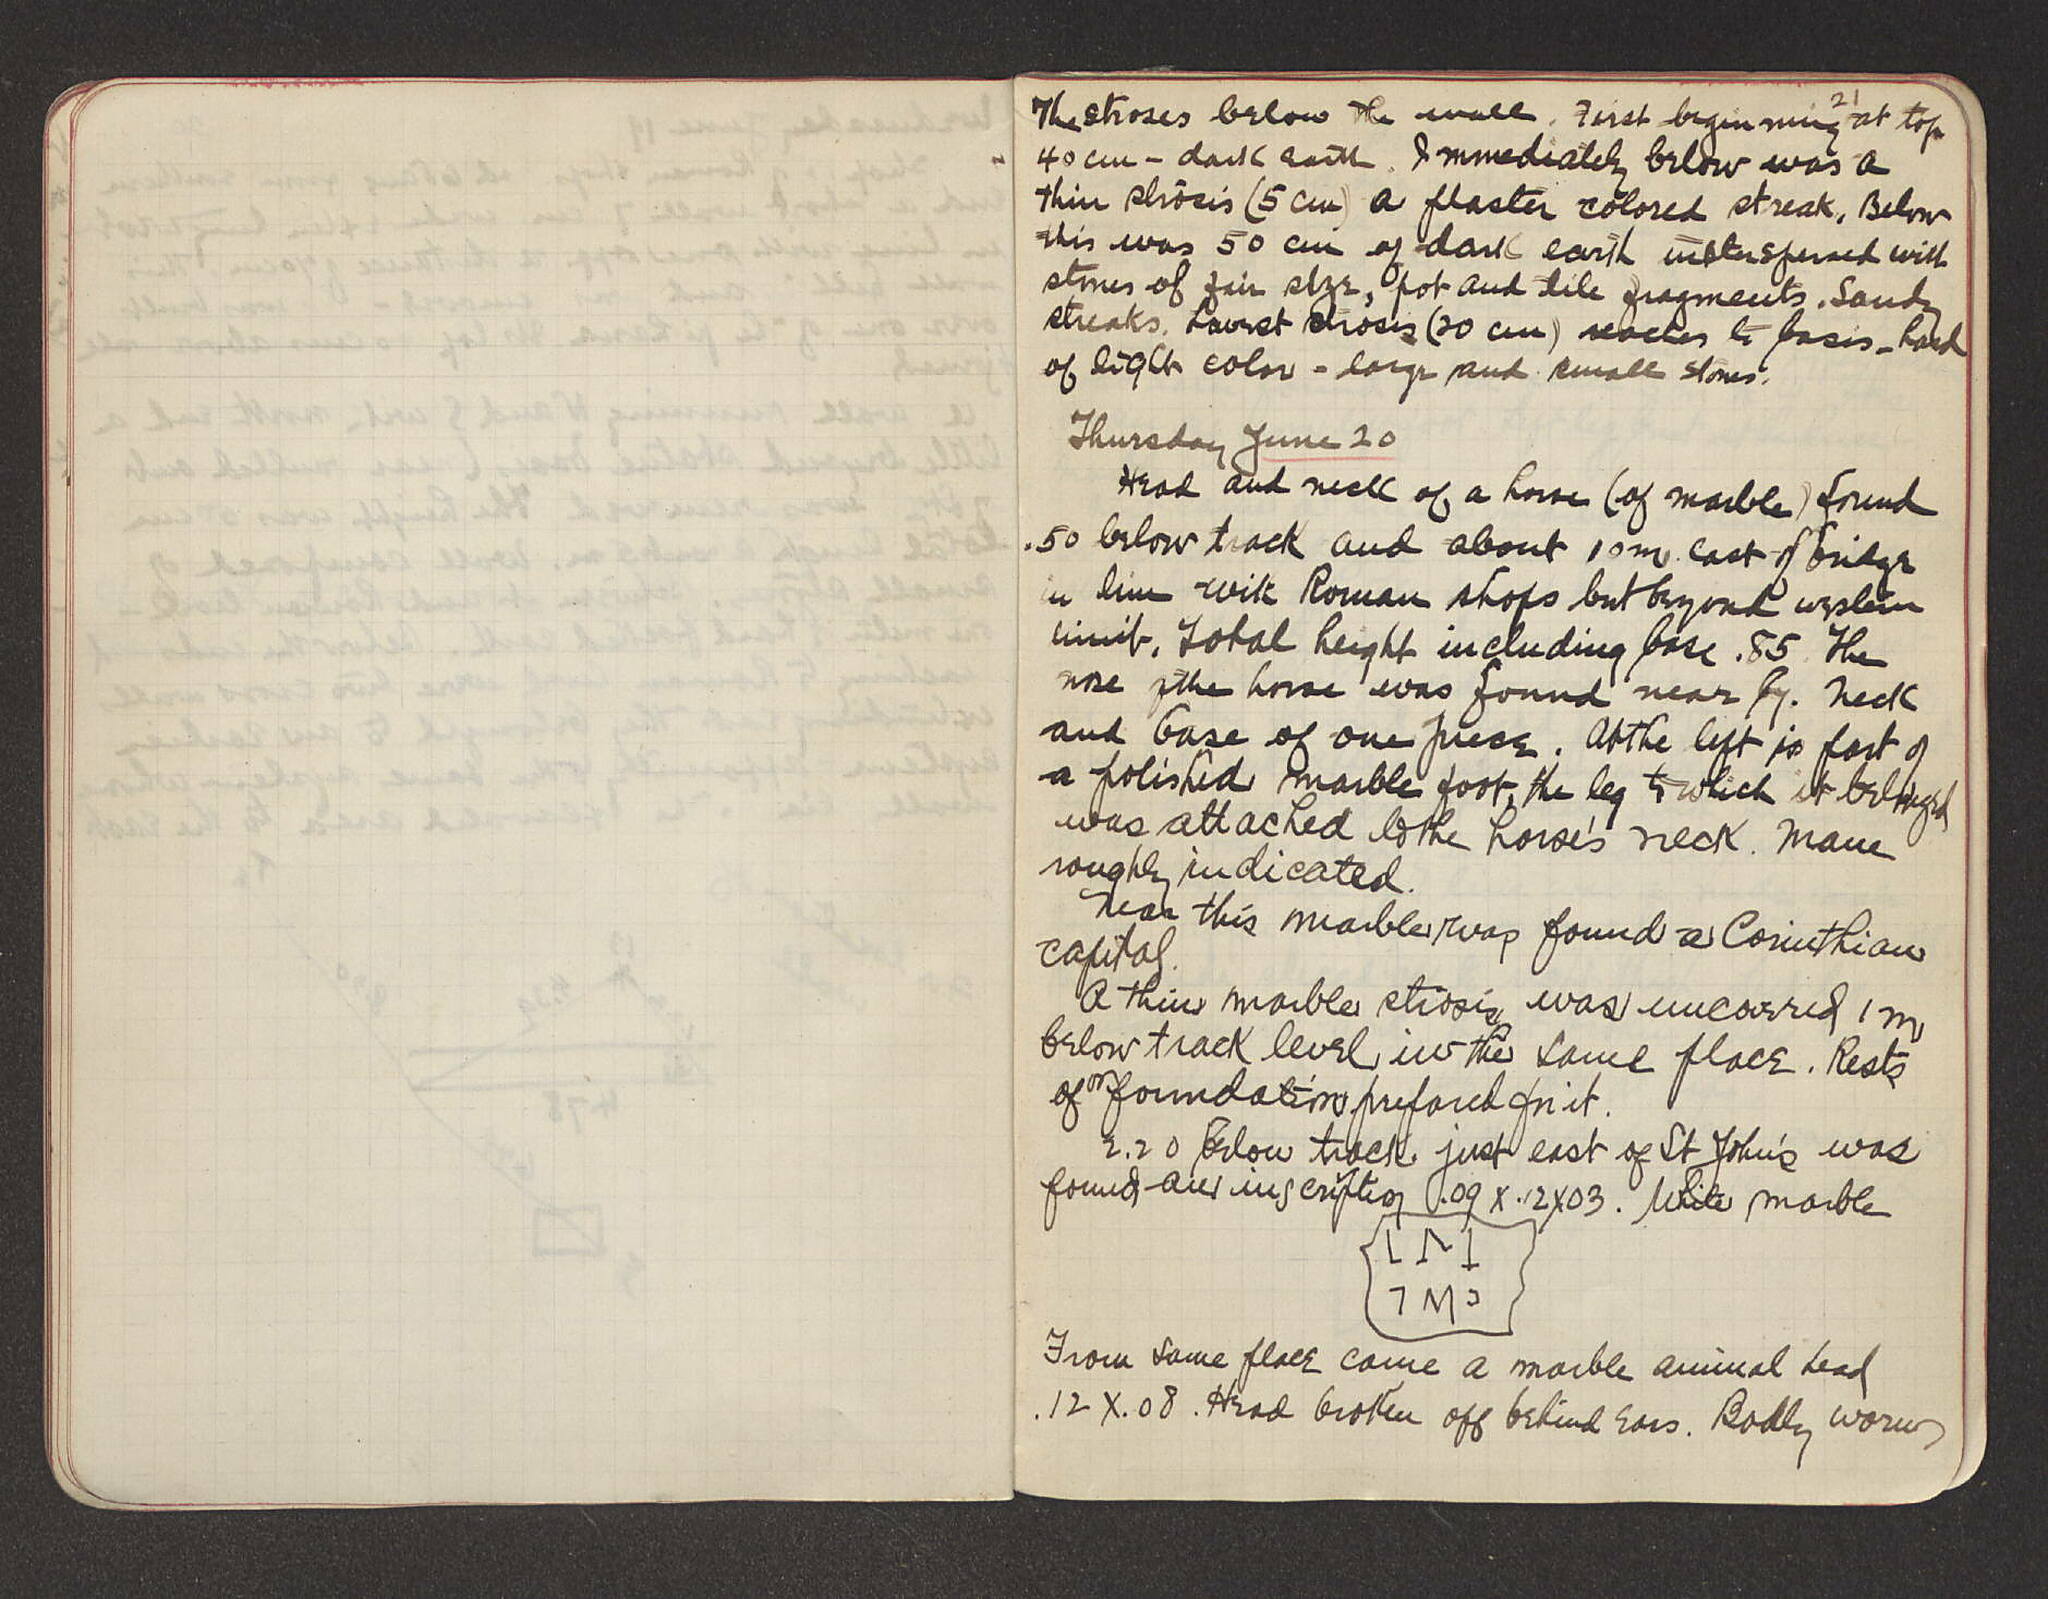 21
The stroses below the wall. First beginning at top
40 cm - dark earth. Immediately below was a
thin strosis (5 cm) a plaster colored streak. Below
this was 50 cm of dark earth interspersed with
stones of fair size, pot and tile fragments. Sandy
streaks. Lowest strosis (20 cm) reaches to basis - hard
of light color - large and small stones.
Thursday June 20
Head and neck of a horse (of marble) found
.50 below track and about 10 m. east of bridge
in line with Roman shops but beyond western
limit. Total height including base .85. The
nose of the horse was found near by. Neck
and base of one piece. At the left is part of
a polished marble foot, the leg to which it belonged
was attached to the horse's neck. Mane
roughly indicated.
Near this marble was found a Corinthian
capital.
A thin marble strosis was uncovered 1 m
below track level in the same place. Rests
on
of foundation prepared for it.
2.20 below track just east of St John's was
found an inscription .09 X .12 X 03. White marble
From same place came a marble animal head
.12 X .08. Head broken off behind ears. Badly worn